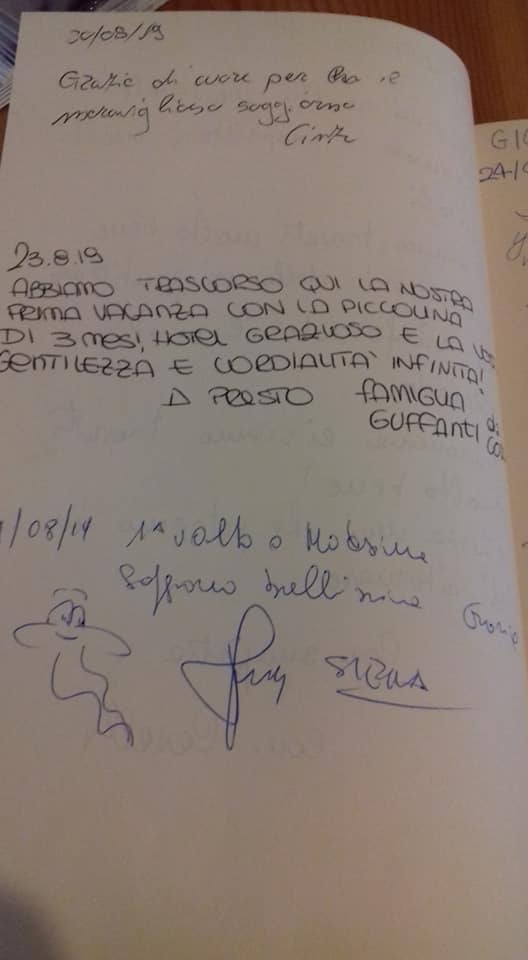 30/08/19
Grazie di cuore per
meraviglioso soggiorno
23.8.19
ABBIAMO TRASCORSO QUI LA NOSTRA
PRIMA VACANZA CON LA PICCOLINA
DI 3 MESI, HOTEL GRAZIOSO E LA
GENTILEZZA E CORDIALITA' INFINITA!
A PRESTO FAMIGLIA
GUFFANTI
/08/19 1ª volta a
Soggiorno bellissimo Grazie
GIO
24/